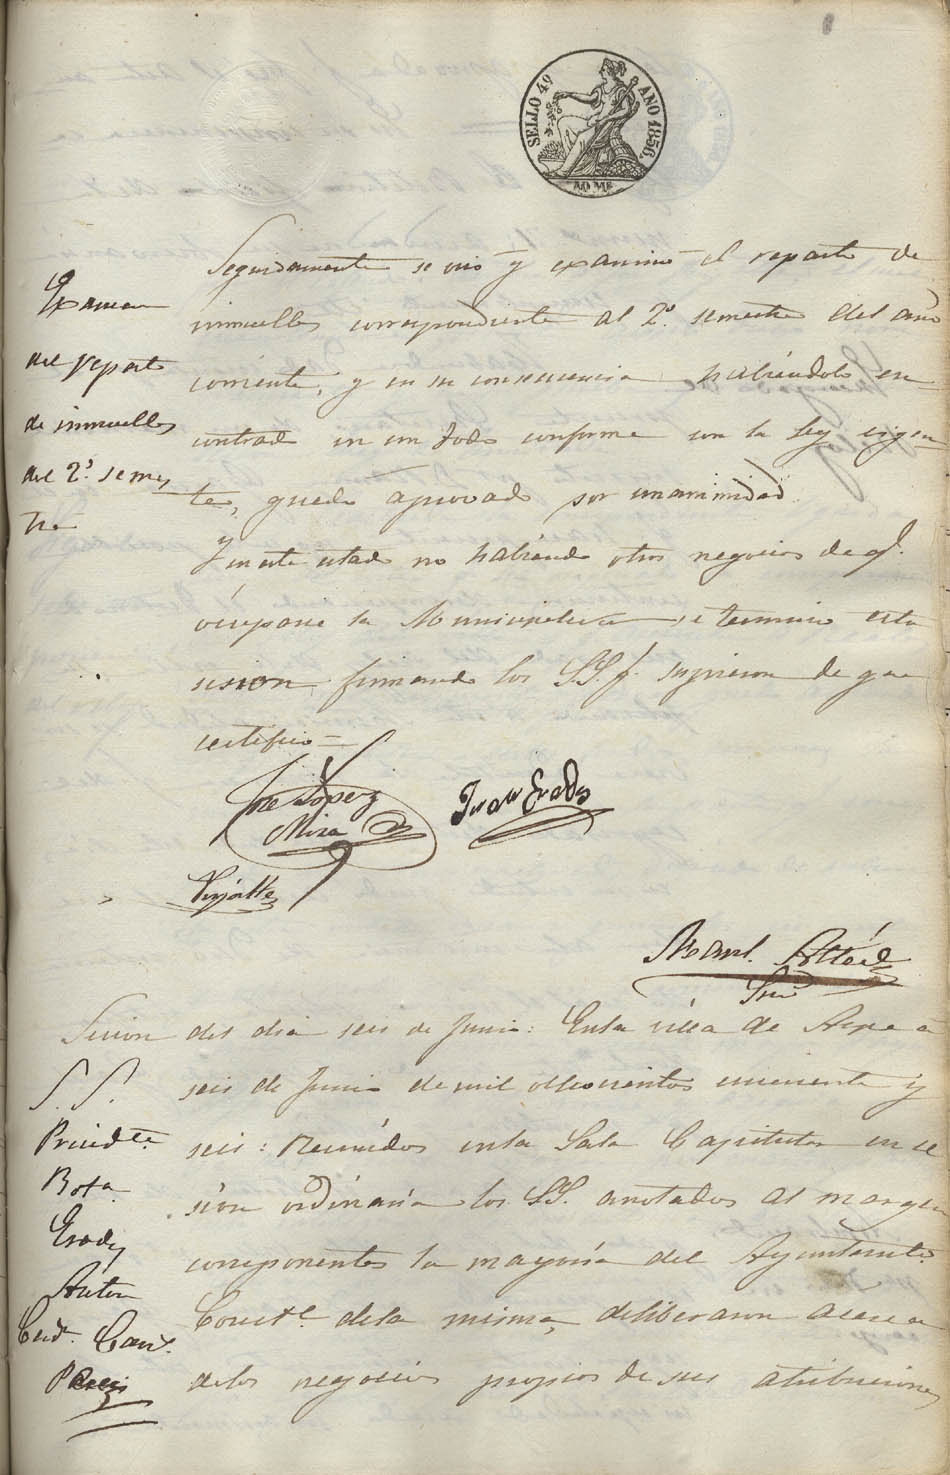 SELLO 4º AÑO 1856.
40 MS
Examen
del reparto
de inmuebles
del 2.º semes
tre
Seguidamente se vio y examinó el reparto de
inmuebles correspondiente al 2.º semestre del año
corriente, y en su consecuencia habiéndolo en
contrado en un todo conforme con la ley vigen
te, quedó aprovado por unanimidad
Y en este estado no habiendo otros negocios de q.
ocuparse la Municipalidad se terminó esta
sesion firmando los SS. q. supieron de que
certifico=
José López
Mira
Juan Erades
Manl. Alted
Srio
Sesion del dia seis de Junio: En la villa de Aspe a
seis de Junio de mil ochocientos cincuenta y
seis: Reunidos en la Sala Capitular en se
sion ordinaria los SS. anotados al margen
componentes la mayoría del Ayuntamto.
Constl. de la misma, deliberaron acerca
de los negocios propios de sus atribuciones
S. S.
Presidte.
Bota
Erades
Anton